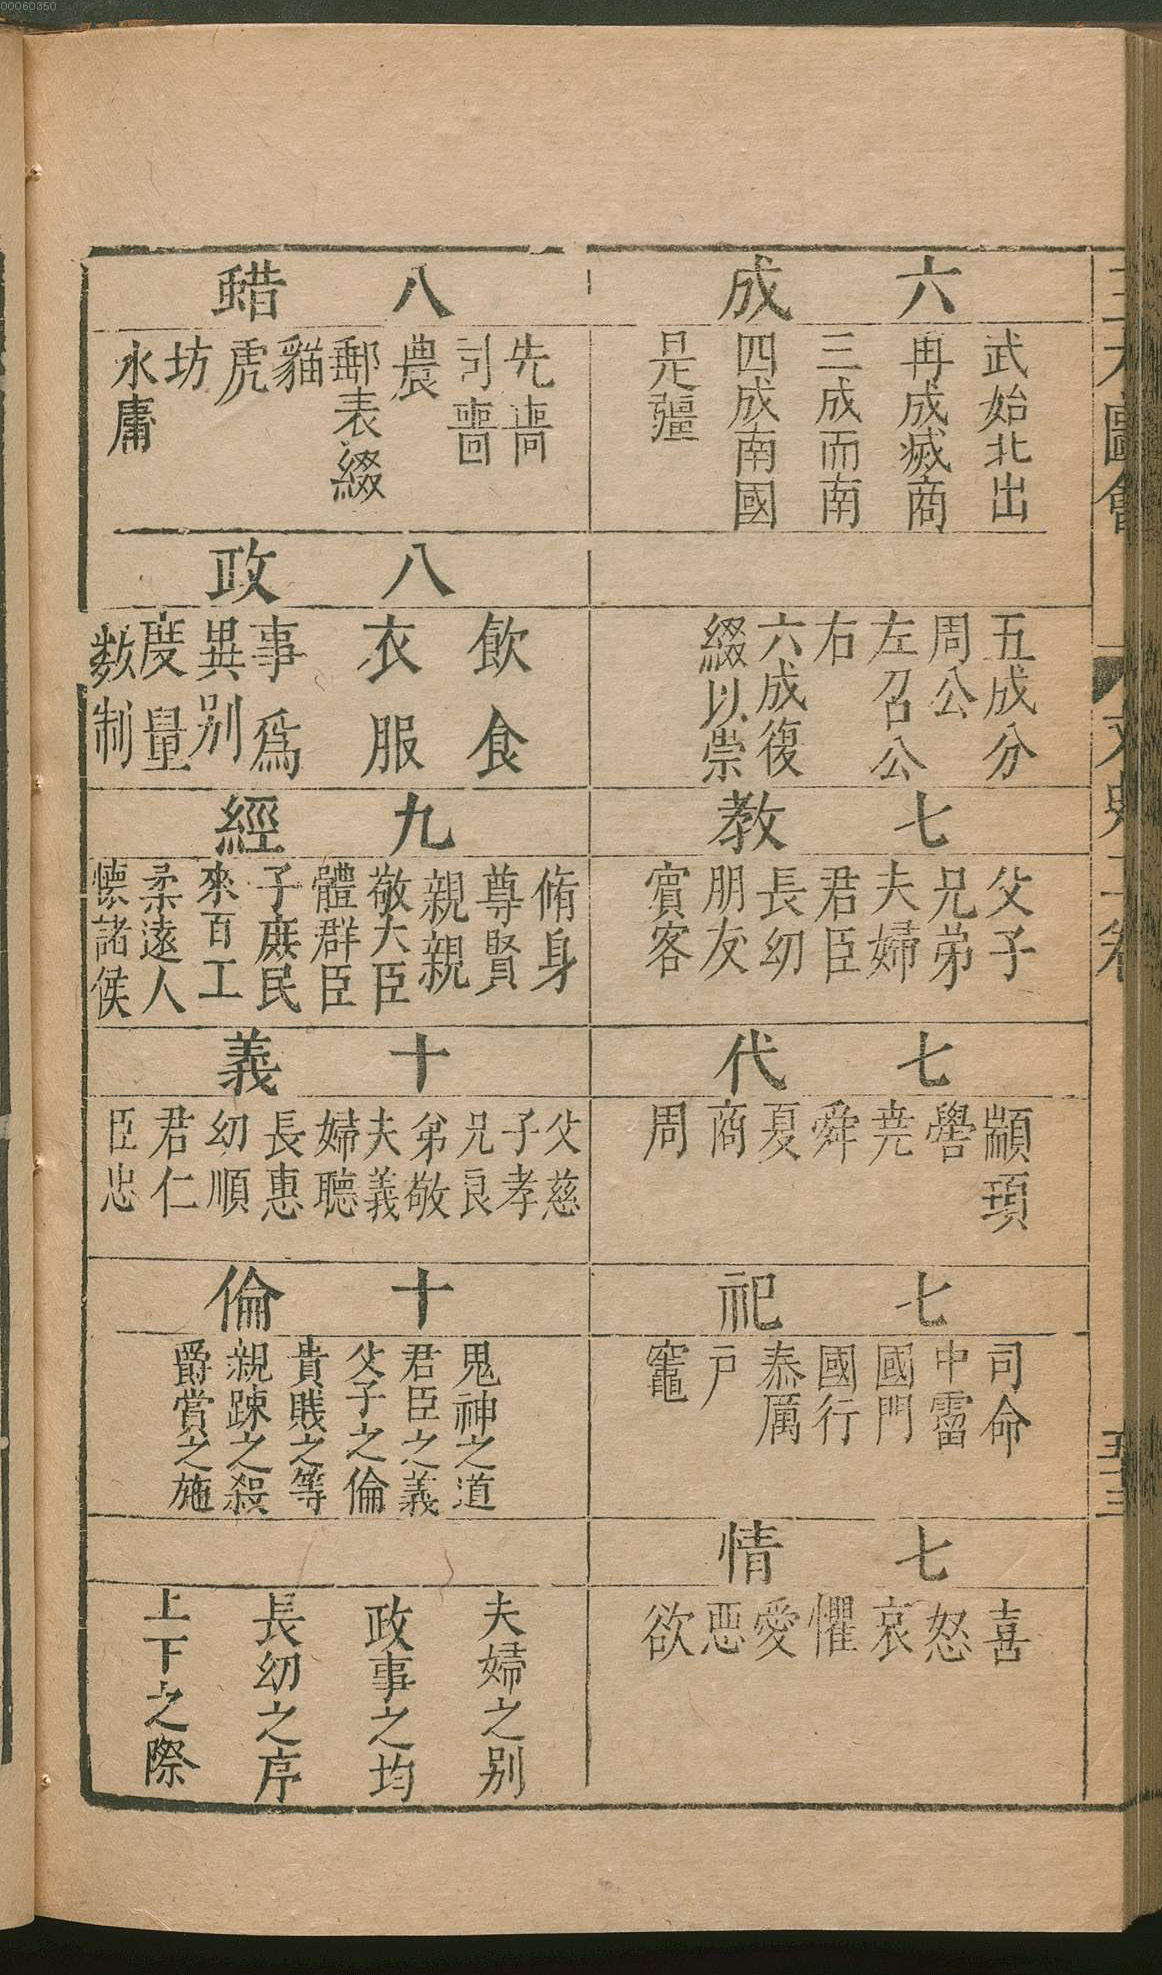 00060350
六成
武始北出
再成滅商
三成而南
四成南國
是疆
五成分
周公
左召公
右
六成復
綴以崇
七教
父子
兄弟
夫婦
君臣
長幼
朋友
賓客
七代
顓頊
嚳
堯
舜
夏
商
周
七祀
司命
中霤
國門
國行
泰厲
戶
竈
七情
喜
怒
哀
懼
愛
惡
欲
八蜡
先嗇
司嗇
農
郵表綴
貓
虎
坊
水庸
八政
飲食
衣服
事為
異別
度量
数制
九經
脩身
尊賢
親親
敬大臣
體群臣
子庶民
來百工
柔遠人
懷諸侯
十義
父慈
子孝
兄良
弟敬
夫義
婦聽
長惠
幼順
君仁
臣忠
十倫
鬼神之道
君臣之義
父子之倫
貴賤之等
親踈之殺
爵賞之施
夫婦之别
政事之均
長幼之序
上下之際